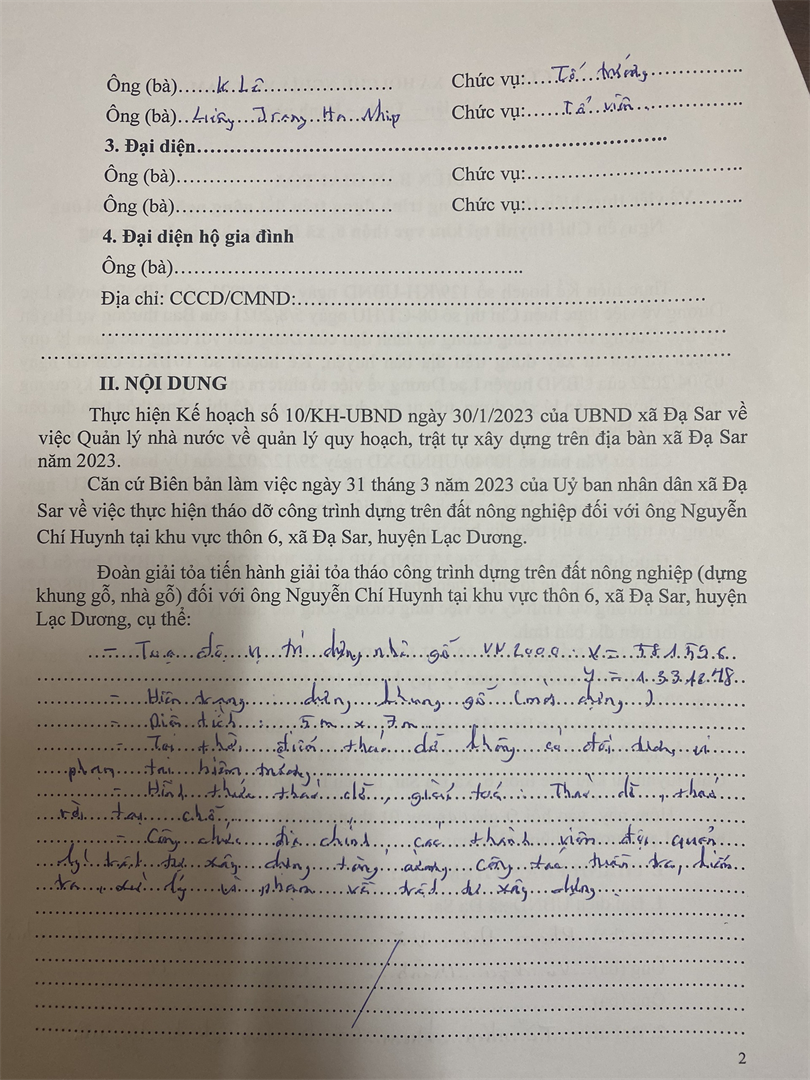 Ông (bà)......K Lê........................ Chức vụ:......Tổ trưởng...............
Ông (bà)..Liêng..Jrang..Ha..Nhip Chức vụ:......Tổ viên...............
3. Đại diện..............................................................................
Ông (bà).................................... Chức vụ:....................................
Ông (bà).................................... Chức vụ:....................................
4. Đại diện hộ gia đình
Ông (bà)..........................................................
Địa chỉ: CCCD/CMND:....................................................................
........................................................................................................
....................................................................................................................
II. NỘI DUNG
Thực hiện Kế hoạch số 10/KH-UBND ngày 30/1/2023 của UBND xã Đạ Sar về
việc Quản lý nhà nước về quản lý quy hoạch, trật tự xây dựng trên địa bàn xã Đạ Sar
năm 2023.
Căn cứ Biên bản làm việc ngày 31 tháng 3 năm 2023 của Uỷ ban nhân dân xã Đạ
Sar về việc thực hiện tháo dỡ công trình dựng trên đất nông nghiệp đối với ông Nguyễn
Chí Huynh tại khu vực thôn 6, xã Đạ Sar, huyện Lạc Dương.
Đoàn giải tỏa tiến hành giải tỏa tháo công trình dựng trên đất nông nghiệp (dựng
khung gỗ, nhà gỗ) đối với ông Nguyễn Chí Huynh tại khu vực thôn 6, xã Đạ Sar, huyện
Lạc Dương, cụ thể:
- Toạ độ vị trí dựng nhà gỗ VN2000: X = 581596
Y = 1334878
- Hiện trạng: dựng khung gỗ (mới dựng)
- Diện tích: 5m x 7m
- Tại thời điểm tháo dỡ không có đối tượng vi
phạm tại hiện trường
- Hình thức tháo dỡ, giải toả: Tháo dỡ, tháo
rời tại chỗ,
- Công chức địa chính, các thành viên đội quản
lý trật tự xây dựng tăng cường công tác tuần tra, kiểm
tra, xử lý vi phạm về trật tự xây dựng
2